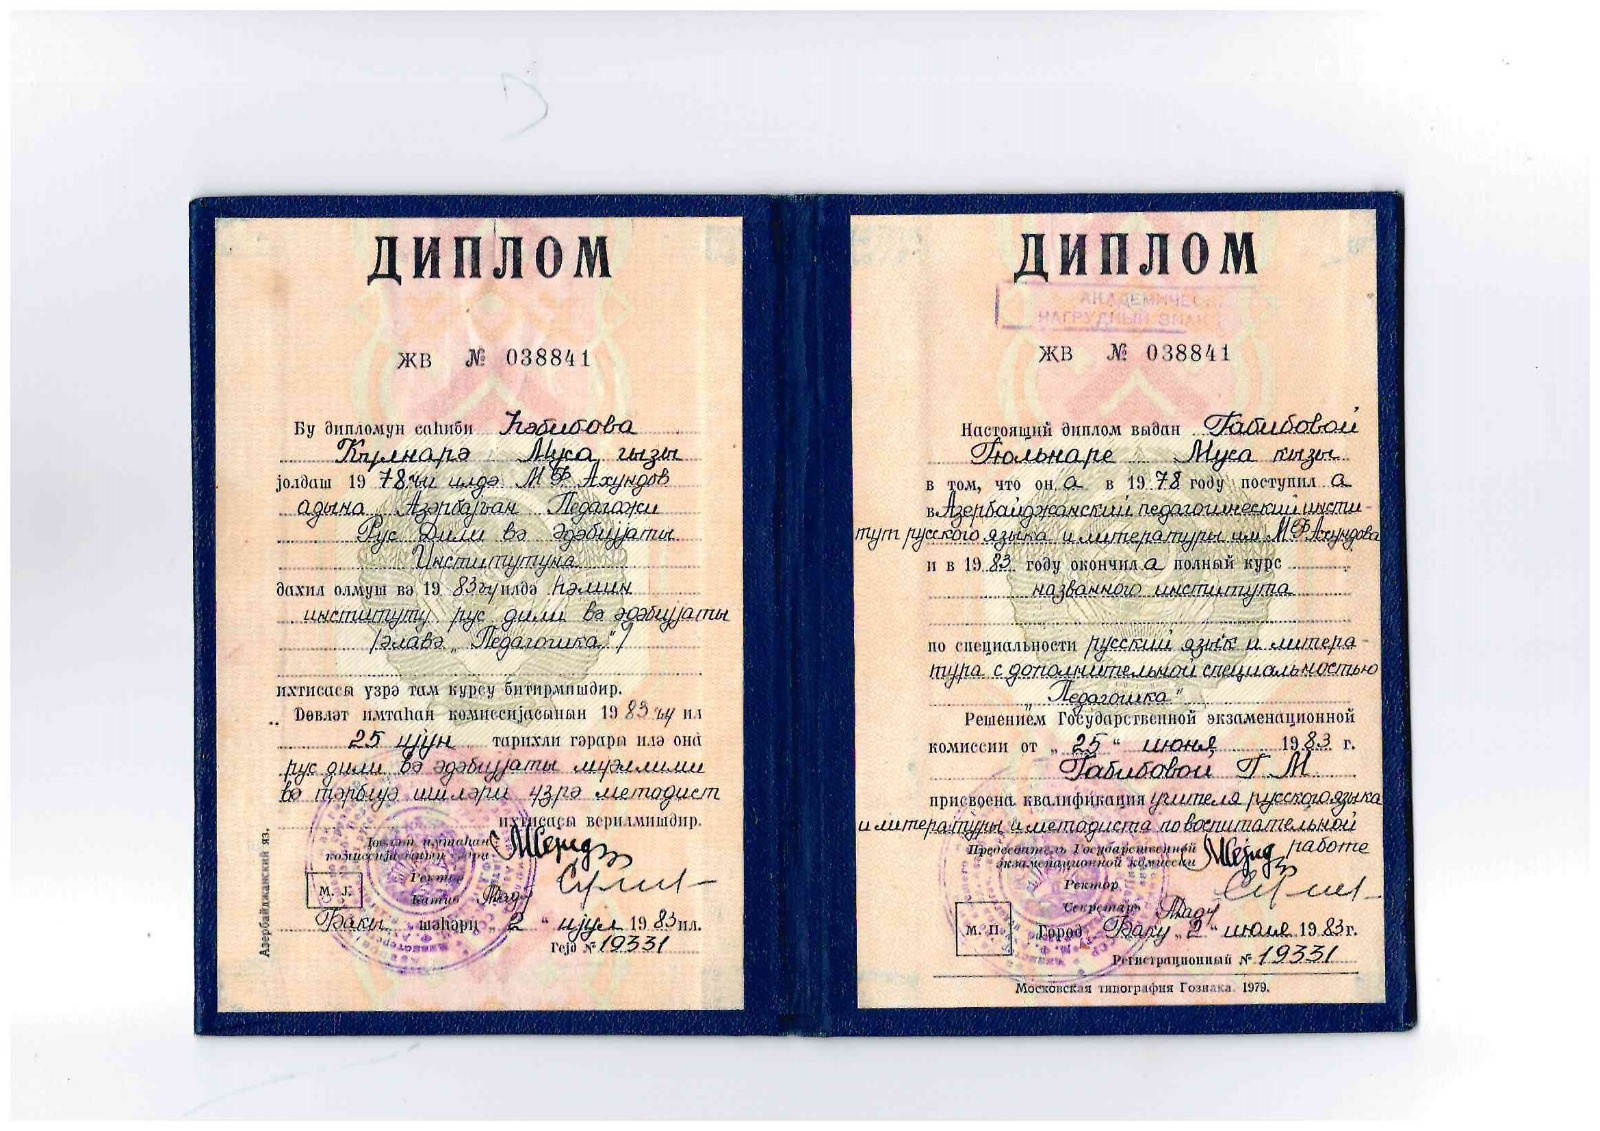 ДИПЛОМ
ЖВ № 038841
Бу дипломун саһиби Һәбибова
Ҝүлнарә Муса гызы
јолдаш 19 78чи илдә М Ф Ахундов
адына Азәрбајҹан Педагожи
Рус Дили вә әдәбијјаты
Институтуна
дахил олмуш вә 19 83ҹү илдә һәмин
институту рус дили вә әдәбијјаты
/әлавә „Педагогика"/
ихтисасы үзрә там курсу битирмишдир.
Дөвләт имтаһан комиссијасынын 19 83 ҹү ил
25 ијун тарихли гәрары илә она
рус дили вә әдәбијјаты мүәллими
вә тәрбијә ишләри үзрә методист
ихтисасы верилмишдир.
Дөвләт имтаһан
комиссијасынын сәдри
Ректор
Катиб
М. Ј.
Бакы шәһәри „ 2 " ијул 19 83 ил.
Гејд № 19331
Азербайджанский яз.
ДИПЛОМ
АКАДЕМИЧЕСК
НАГРУДНЫЙ ЗНАК
ЖВ № 038841
Настоящий диплом выдан Габибовой
Гюльнаре Муса кызы
в том, что он а в 19 78 году поступил а
в Азербайджанский педагогический инсти-
тут русского языка и литературы им М Ф Ахундова
и в 19 83 году окончил а полный курс
названного института
по специальности русский язык и литера-
тура с дополнительной специальностью
„Педагогика"
Решением Государственной экзаменационной
комиссии от „ 25 " июня 19 83 г.
Габибовой Г М.
присвоена квалификация учителя русского языка
и литературы и методиста по воспитательной
работе
Председатель Государственной
экзаменационной комиссии
Ректор
Секретарь
М. П.
Город Баку „ 2 " июля 19 83 г.
Регистрационный № 19331
Московская типография Гознака. 1979.